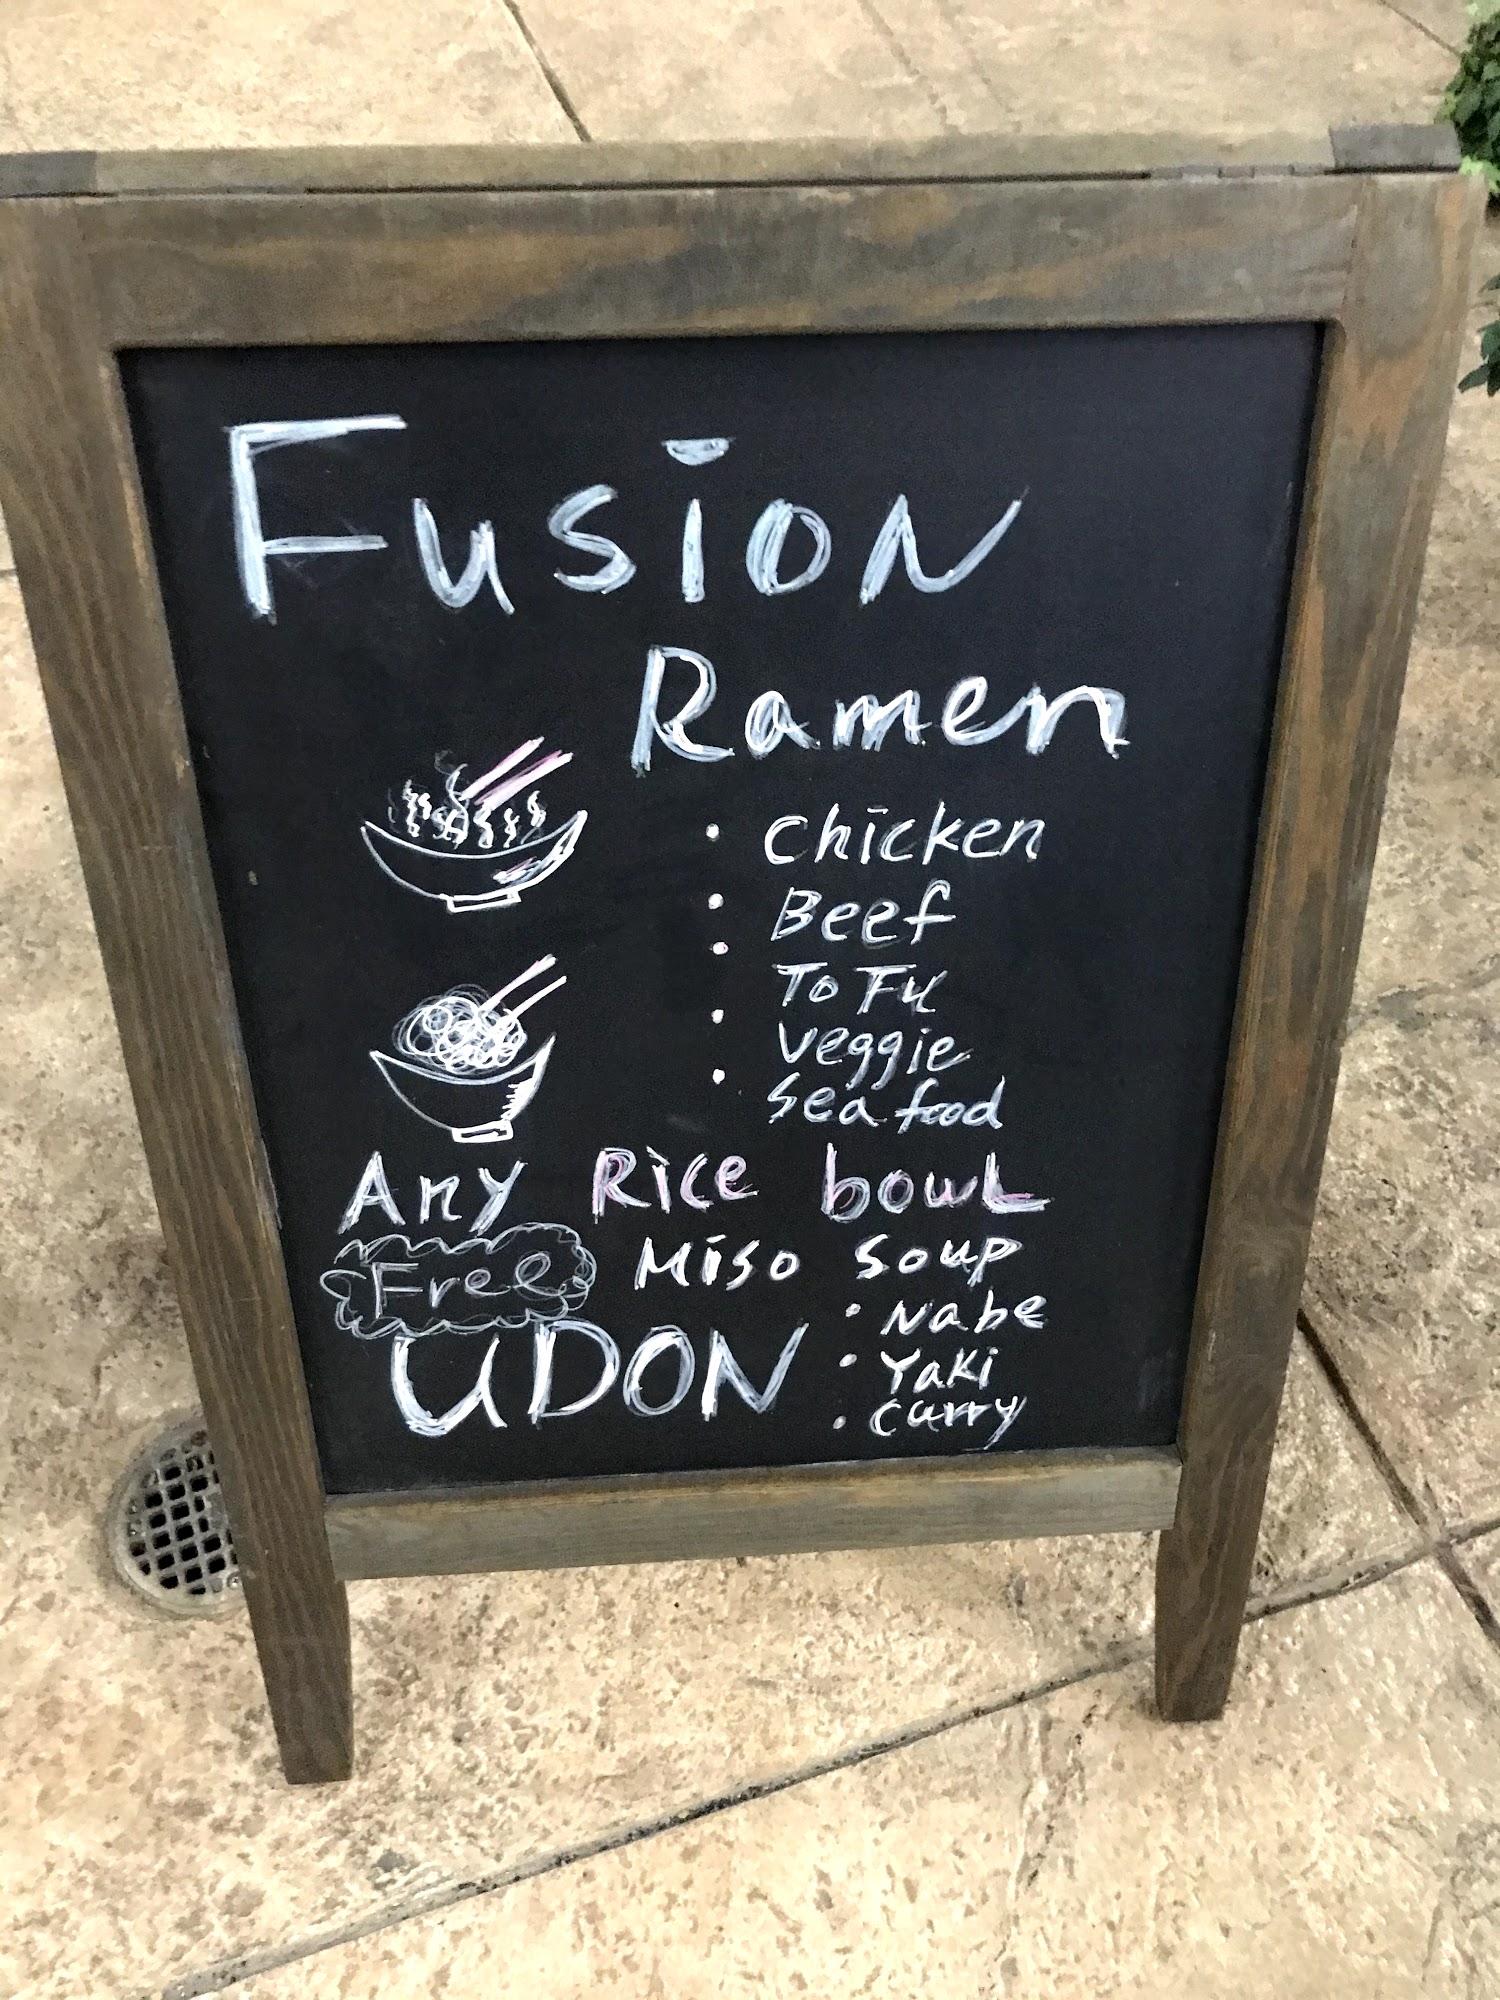 Fusion
Ramen
• Chicken
• Beef
• To Fu
• Veggie
• Sea food
Any Rice bowl
Free Miso Soup
UDON
• Nabe
• Yaki
• Curry